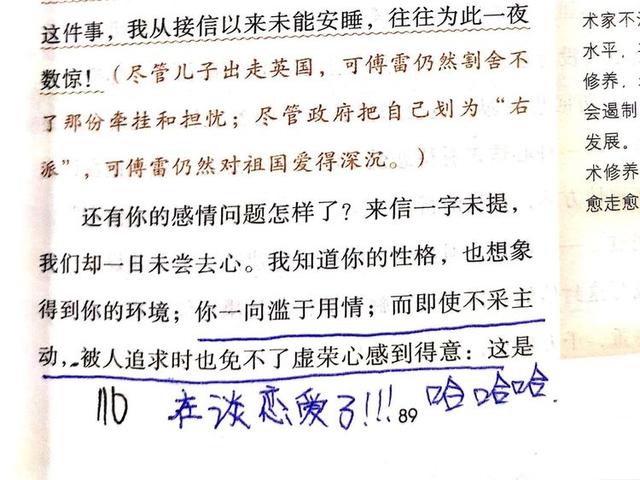 这件事，我从接信以来未能安睡，往往为此一夜
数惊！（尽管儿子出走英国，可傅雷仍然割舍不
了那份牵挂和担忧；尽管政府把自己划为“右
派”，可傅雷仍然对祖国爱得深沉。）
还有你的感情问题怎样了？来信一字未提，
我们却一日未尝去心。我知道你的性格，也想象
得到你的环境；你一向滥于用情；而即使不采主
动，被人追求时也免不了虚荣心感到得意：这是
在谈恋爱了!!! 哈哈哈
89
术家不
水平，
修养，
会遏制
发展。
术修养
愈走愈